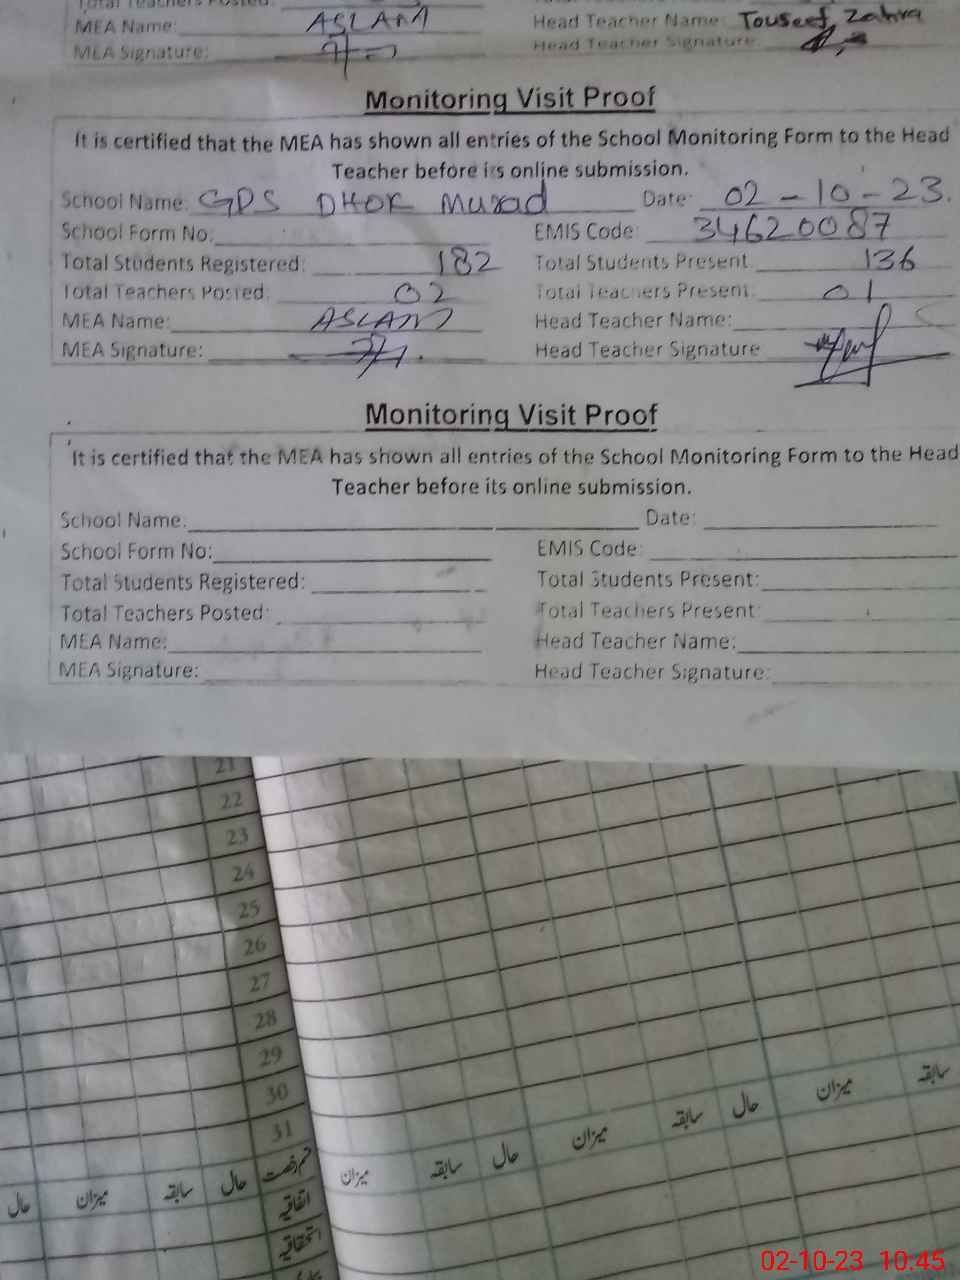 Total Teachers Posted:
MEA Name: ASLAM Head Teacher Name: Touseef, Zahra
MEA Signature: Head Teacher Signature:
Monitoring Visit Proof
It is certified that the MEA has shown all entries of the School Monitoring Form to the Head
Teacher before its online submission.
School Name: GPS DHOK Murad Date: 02-10-23.
School Form No: EMIS Code: 34620087
Total Students Registered: 182 Total Students Present 136
Total Teachers Posted: 02 Total Teachers Present: 01
MEA Name: ASLAM Head Teacher Name:
MEA Signature: Head Teacher Signature
Monitoring Visit Proof
It is certified that the MEA has shown all entries of the School Monitoring Form to the Head
Teacher before its online submission.
School Name: Date:
School Form No: EMIS Code:
Total Students Registered: Total Students Present:
Total Teachers Posted: Total Teachers Present:
MEA Name: Head Teacher Name:
MEA Signature: Head Teacher Signature:
21
22
23
24
25
26
27
28
29
30
31
سابقہ میزان حال سابقہ میزان حال سابقہ میزان قسم رخصت حال سابقہ میزان حال
اتفاقیہ
استحقاقیہ
02-10-23 10:45